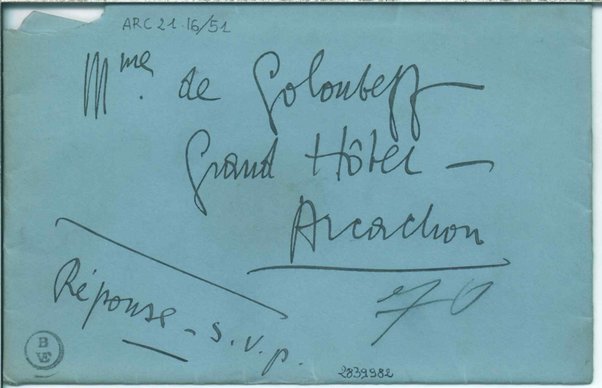 ARC 21.16/51
Mme. de Goloubeff
Grand Hôtel –
Arcachon
Réponse – s.v.p.
70
B
VE
2839982